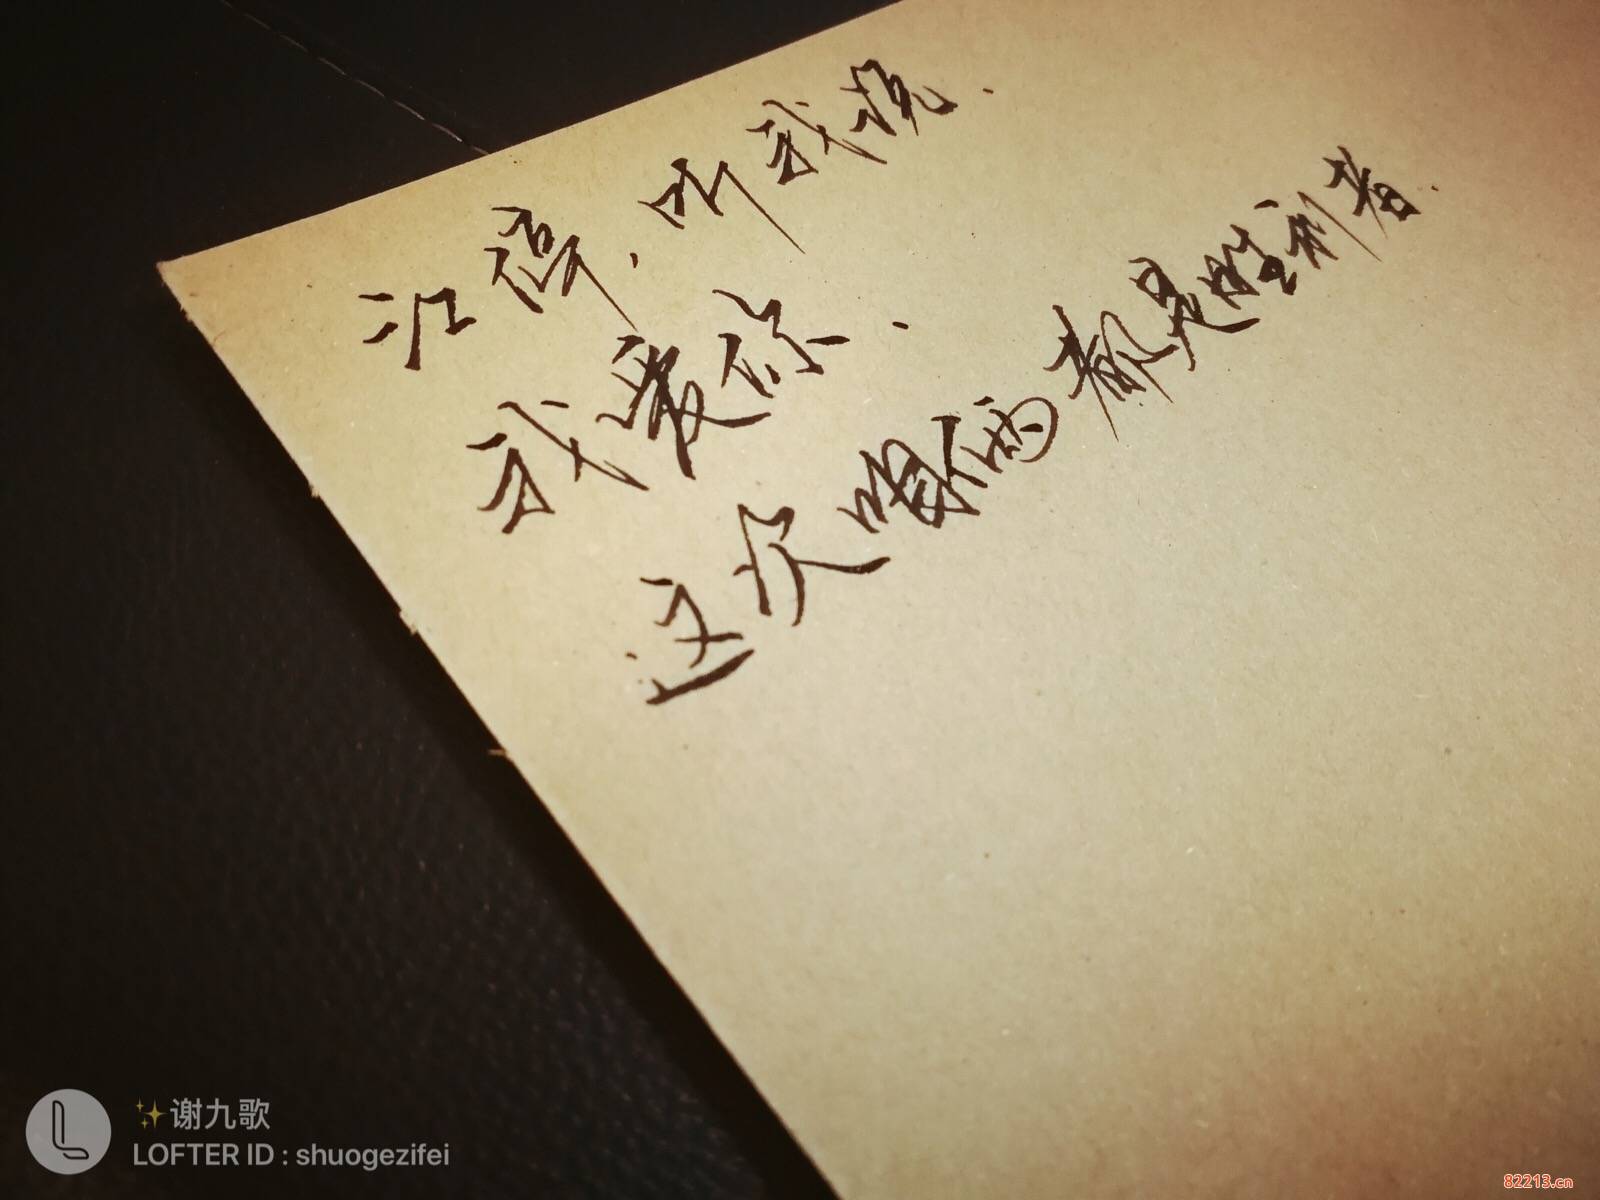 江停，听我说.
我爱你.
这次咱俩都是胜利者.
✨谢九歌
LOFTER ID : shuogezifei
82213.cn